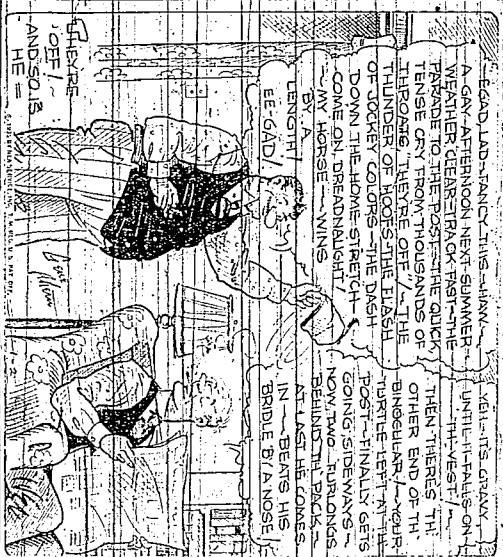 EGAD, LAD~FANCY THIS~HAW~
A GAY AFTERNOON NEXT SUMMER~
WEATHER CLEAR~TRACK FAST~THE
PARADE TO THE POST~THE QUICK,
TENSE CRY FROM THOUSANDS OF
THROATS, THEY'RE OFF!~THE
THUNDER OF HOOFS~THE FLASH
OF JOCKEY COLORS~THE DASH
DOWN THE HOME STRETCH~
COME ON DREADNAUGHT!
~MY HORSE~WINS
BY A
LENGTH!
EE-GAD!
YEH~ITS GRAVY
UNTIL IT FALLS ON
TH' VEST!~
THEN THERE'S TH'
OTHER END OF TH'
BINOCULAR!~YOUR
TURTLE LEFT AT TH'
POST~FINALLY GETS
GOING SIDEWAYS~
NOW TWO FURLONGS
BEHIND TH' PACK~
AT LAST HE COMES
IN~BEATS HIS
BRIDLE BY A NOSE!
THEY'RE
OFF!~
AND SO IS
HE=